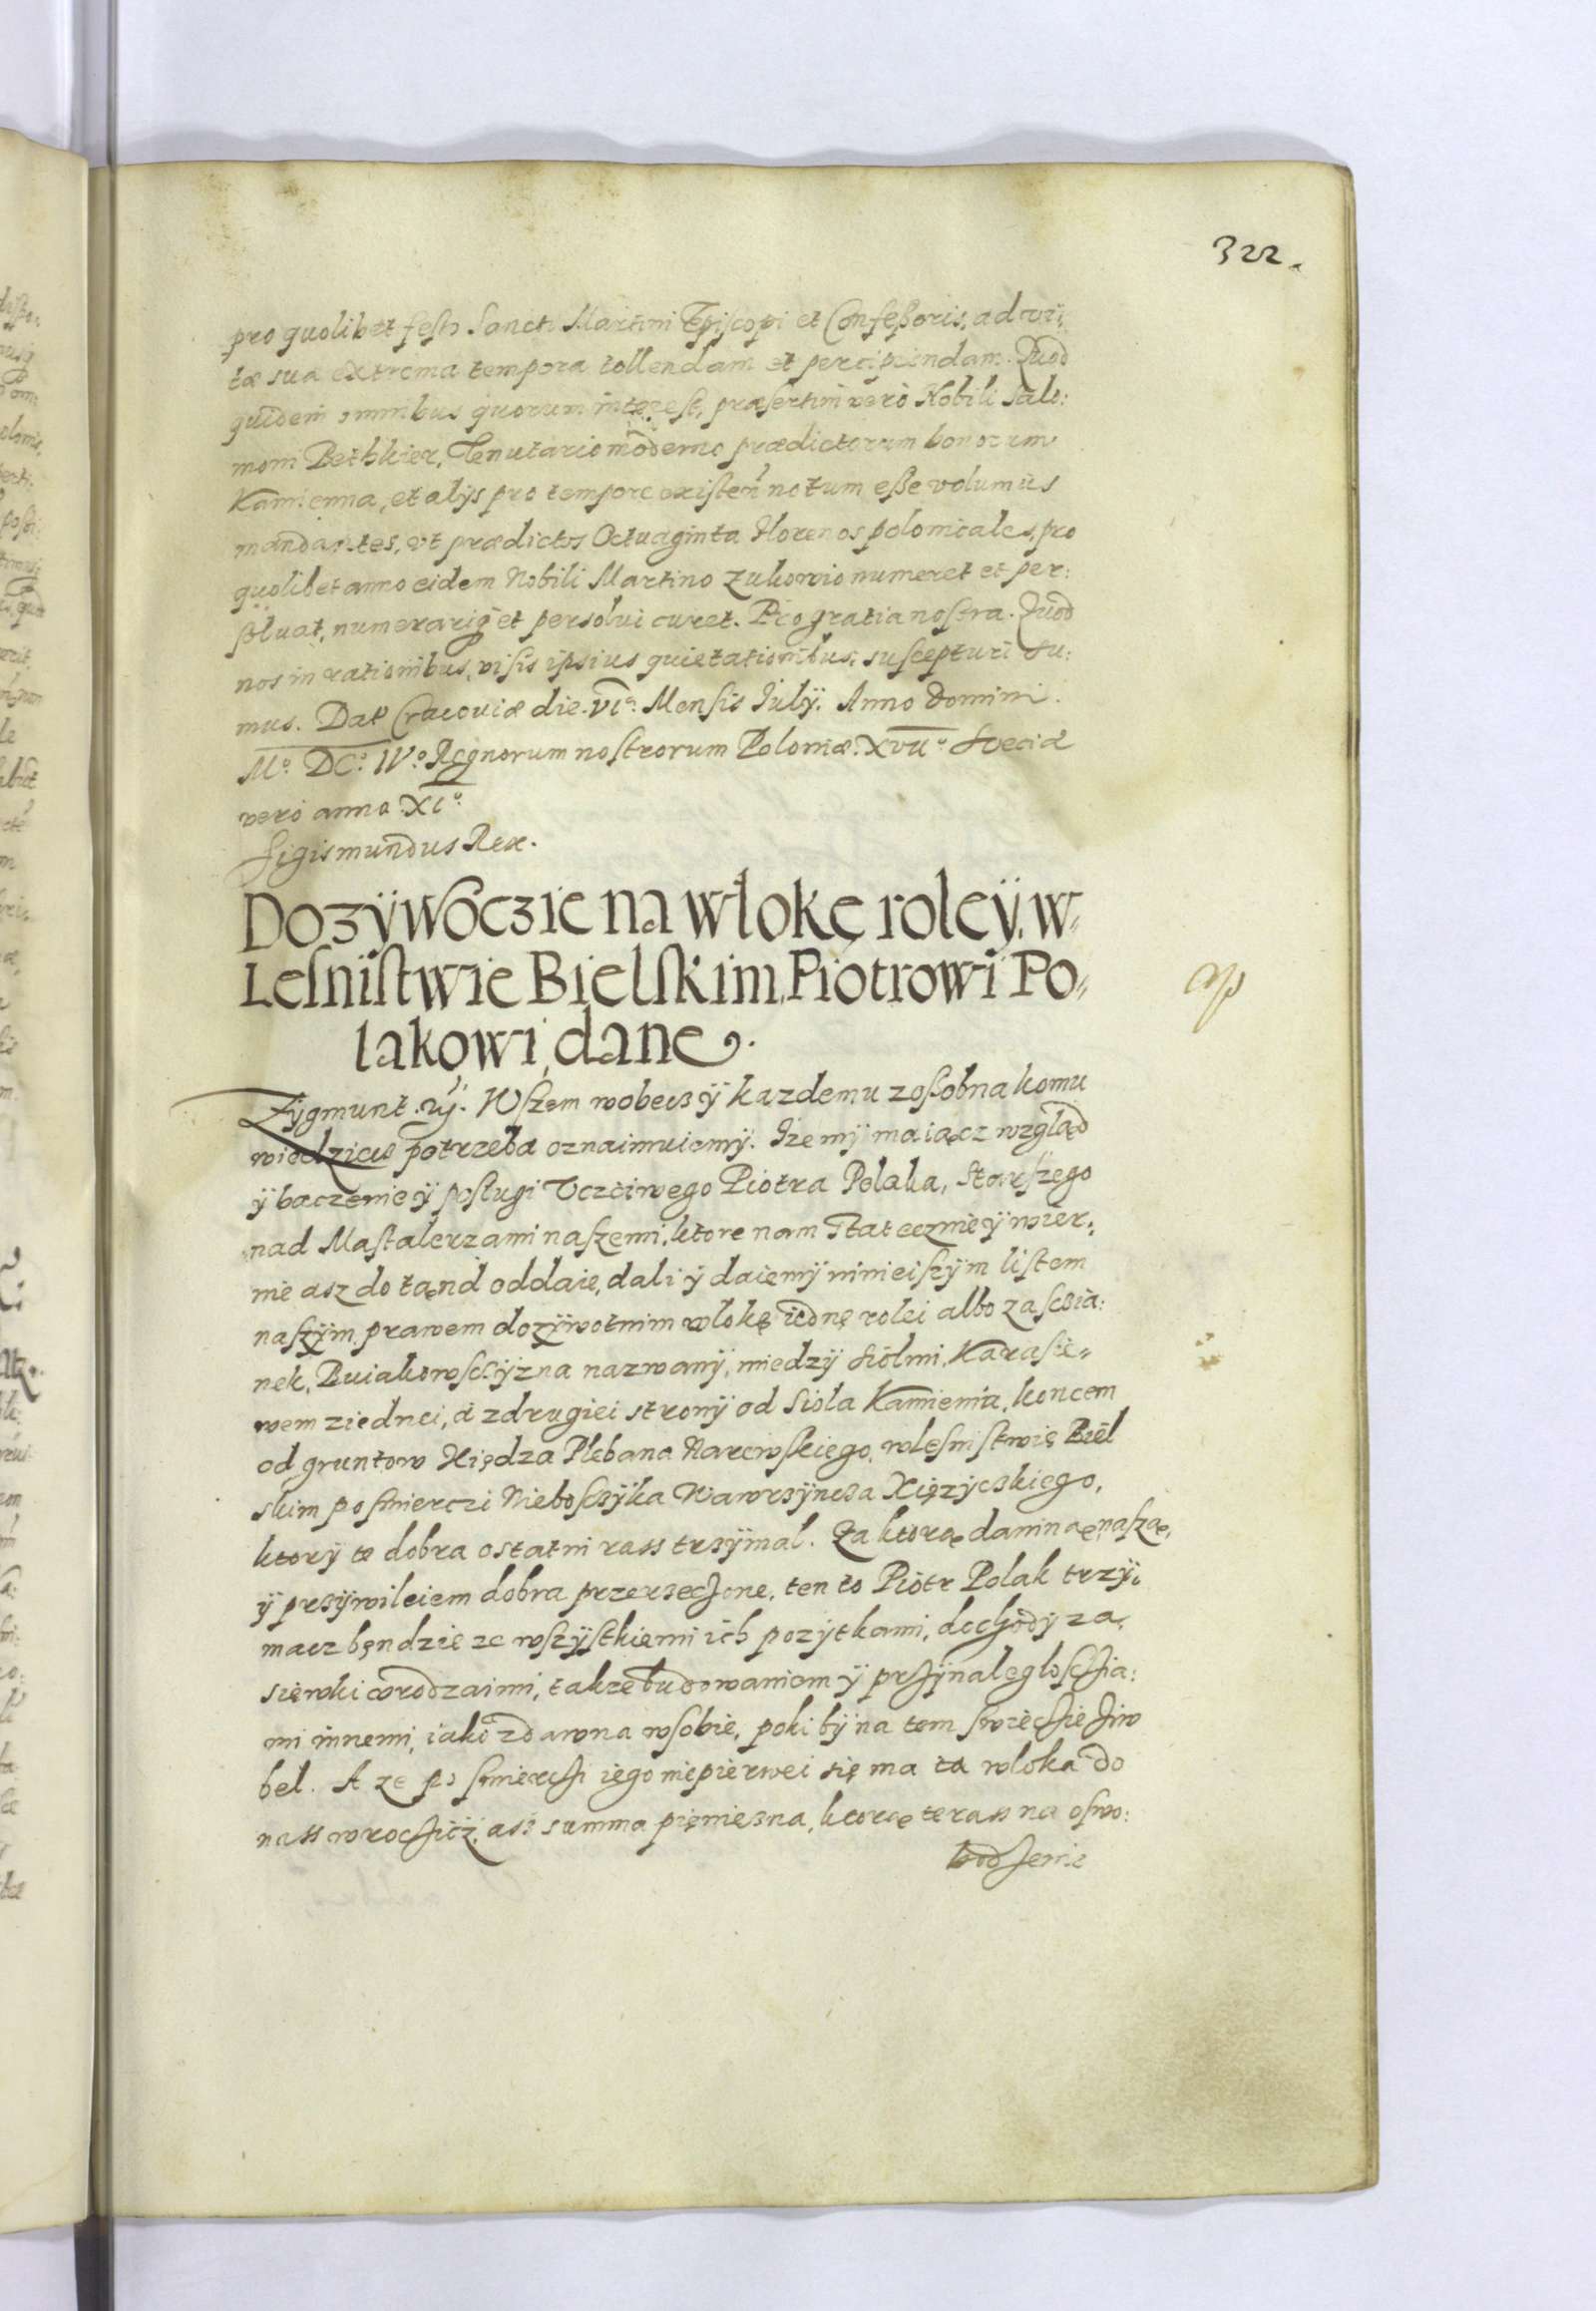 322.
pro quolibet festo Sancti Martini Episcopi et Confeßoris, ad vi,
tæ sua extrema tempora tollendam et percipiendam. Quod
quidem omnibus quorum interest, præsertim vero Nobili Salo:
moni Bethkier, Tenutario moderno prædictorum bonorum
Kamienna, et alijs pro tempore existen notum eße volumus
mandantes, vt prædictos Octuaginta florenos polonicales, pro
quolibet anno eidem Nobili Martino Zukowio numeret et per:
soluat, numerariq et persolui curet. Pro gratia nostra. Quod
nos in rationibus, visis ipsius quietationibus, suscepturi su:
mus. Dat Cracouiæ die. VIa. Mensis Iulÿ. Anno Domini.
Mo. DCo. IVo. Regnorum nostrorum Poloniæ. XVIIo. Sveciæ
vero anno. XIo.
Sigismundus Rex.
Dozÿwoczie na włokę roleÿ, w
Lesnistwie Bielskim, Piotrowi Po
lakowi, dane.
ap
Zÿgmunt .ııj. Wszem wobecz ÿ kazdemu zosobna komu
wiedziec potrzeba oznaimuiemÿ. Ize mÿ maiącz wzgląd
ÿ baczenie ÿ posługi Vczciwego Piotra Polaka, starszego
nad Mastalerzami naszemi, ktore nam statecznie ÿ wier,
nie asz do tąnd oddaie, dali ÿ daiemÿ ninieiszÿm listem
naszÿm, prawem dozÿwotnim włokę iednę rolei albo zascia:
nek, Buiakowsczÿzna nazwanÿ, miedzÿ siołmi, Karasie
wem ziednei, a zdrugiei stronÿ od Sioła Kamienia, koncem
od gruntow Xiędza Plebana Narewskiego, wlesnistwie Biel
skim po smierczi Nieboszÿka Wawrzÿnca Xięzycskiego,
ktory te dobra ostatni rass trzÿmal. Za ktorą daninąę naszaę,
ÿ przÿwileiem dobra przerzeczone, ten to Piotr Polak trzÿ,
macz będzie ze wszÿstkiemi ich pozÿtkami, dochodÿ za,
siewki wrodzaimi, takze budowaniem ÿ przÿnaleglosczia:
mi innemi, iako zdawna wsobie, poki bÿ na tem swiecie ziw
bel. A ze po smierczi iego niepierwei się ma ta włoka do
nass wrocicz, asz summa pieniezna, ktorą terass na oswo:
bodzenie